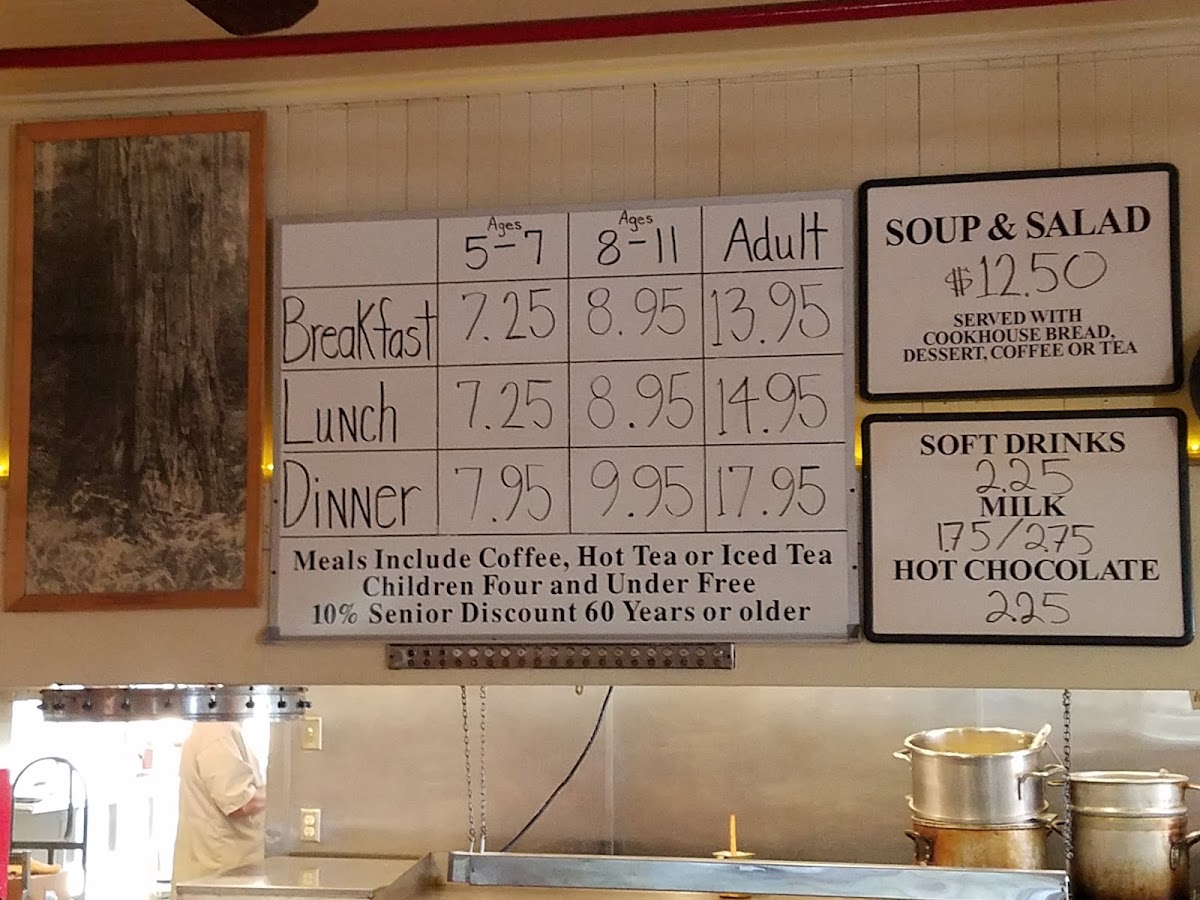 Ages Ages
5-7 8-11 Adult
Breakfast 7.25 8.95 13.95
Lunch 7.25 8.95 14.95
Dinner 7.95 9.95 17.95
Meals Include Coffee, Hot Tea or Iced Tea
Children Four and Under Free
10% Senior Discount 60 Years or older
SOUP & SALAD
$12.50
SERVED WITH
COOKHOUSE BREAD,
DESSERT, COFFEE OR TEA
SOFT DRINKS
2.25
MILK
1.75/2.75
HOT CHOCOLATE
2.25